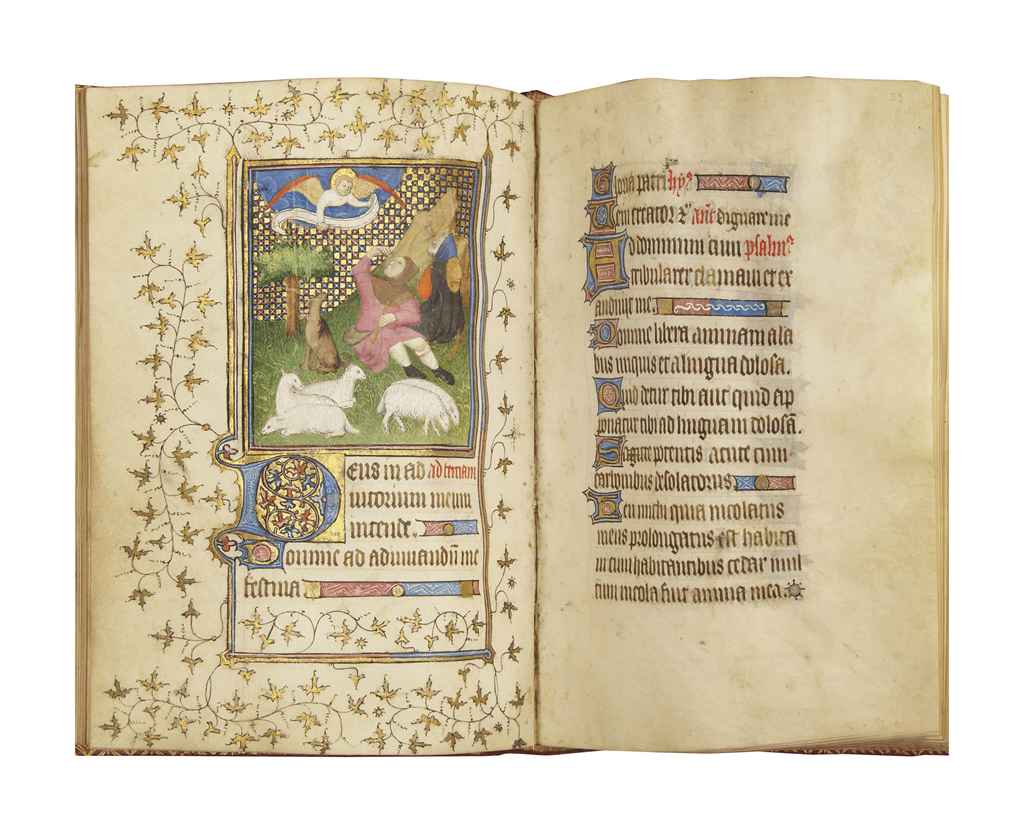 Deus in ad ad terciam
iutorium meum
intende.
Domine ad adiuuandū me
festina
Gloria patri hȳ⁹
Nem creator ⁊c̄ an̄e dignare me
Ad dominum cum psalm⁹
tribularer clamaui et ex
audiuit me.
Domine libera animam a la
biis iniquis et a lingua dolosa.
Quid detur tibi aut quid ap
ponatur tibi ad linguam dolosā.
Sagitte potentis acute cum
carbonibus desolatoriis
Heu michi quia incolatus
meus prolongatus est habita
ui cum habitantibus cedar mul
tum incola fuit anima mea.